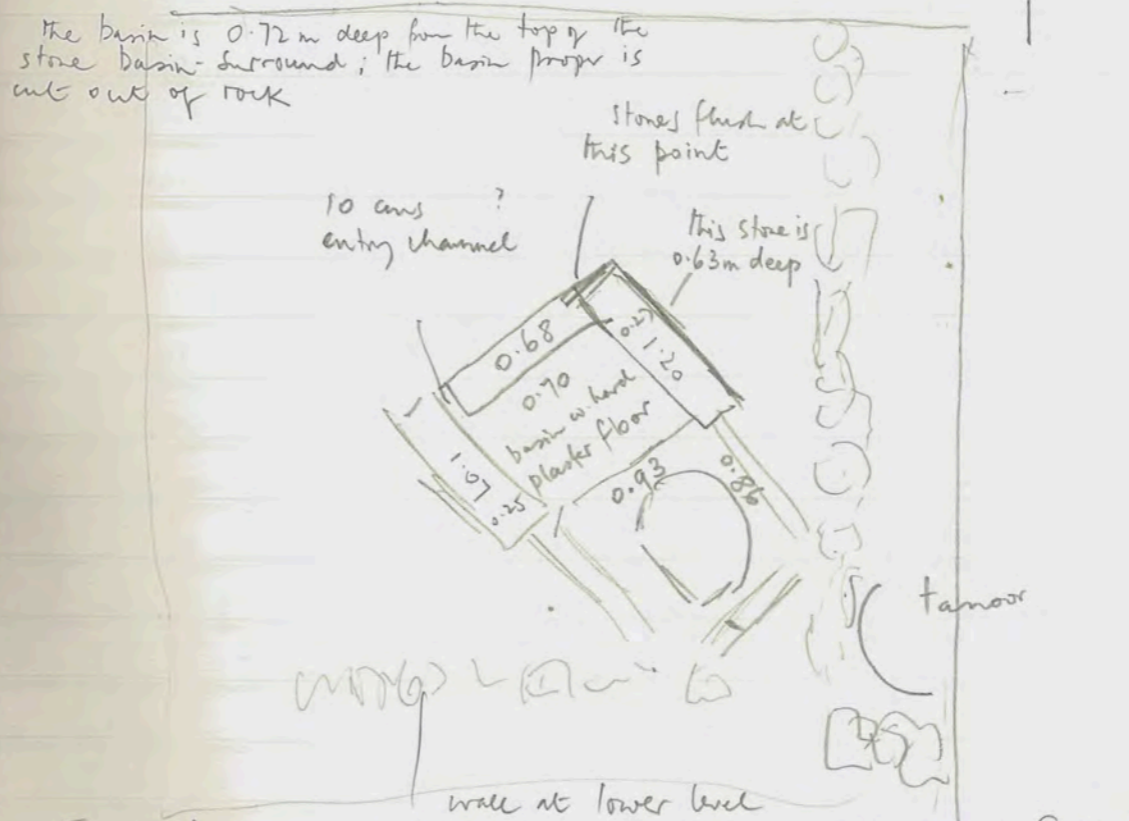 the basin is 0.72 m deep from the top of the
stone basin-surround; the basin proper is
cut out of rock
stones flush at
this point
10 cms ?
entry channel
this stone is
0.63m deep
0.68
0.27
1.20
0.70
basin w. hard
plaster floor
1.07
0.25
0.93
0.86
tanoor
wall at lower level